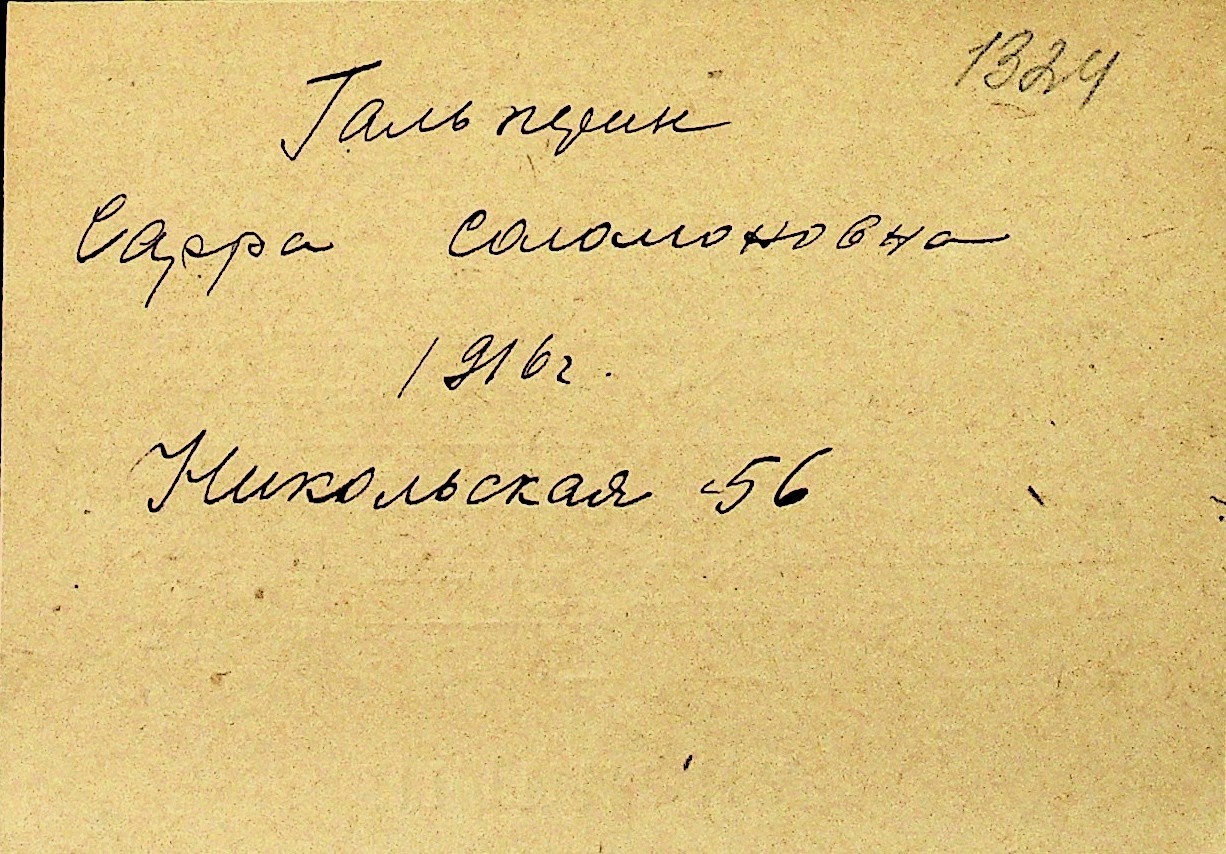 1324
Гальперин
Сарра Соломоновна
1916г.
Никольская -56